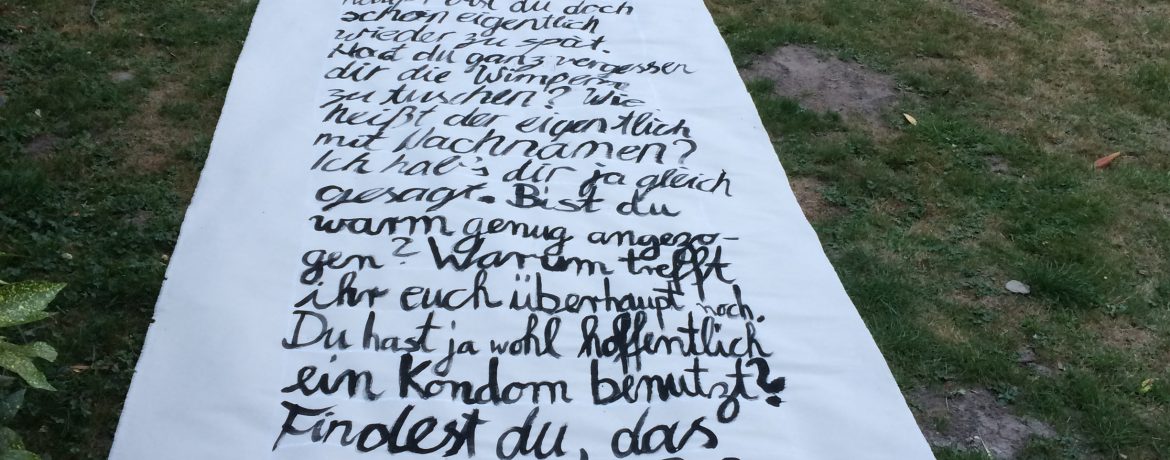 bist du doch
schon eigentlich
wieder zu spät.
Hast du ganz vergessen
dir die Wimpern
zu tuschen? Wie
heißt der eigentlich
mit Nachnamen?
Ich hab's dir ja gleich
gesagt. Bist du
warm genug angezo-
gen? Warum trefft
ihr euch überhaupt noch.
Du hast ja wohl hoffentlich
ein Kondom benutzt?
Findest du, das